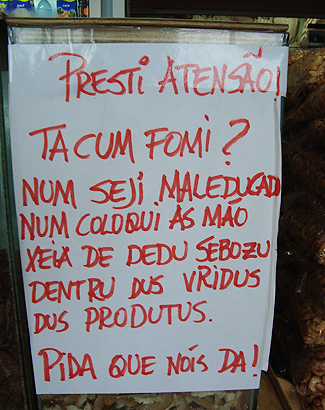 PRESTI ATENSÃO!
TA CUM FOMI?
NUM SEJI MALEDUCADO
NUM COLOQUI AS MÃO
XEIA DE DEDU SEBOZU
DENTRU DUS VRIDUS
DUS PRODUTUS.
PIDA QUE NÓIS DA!